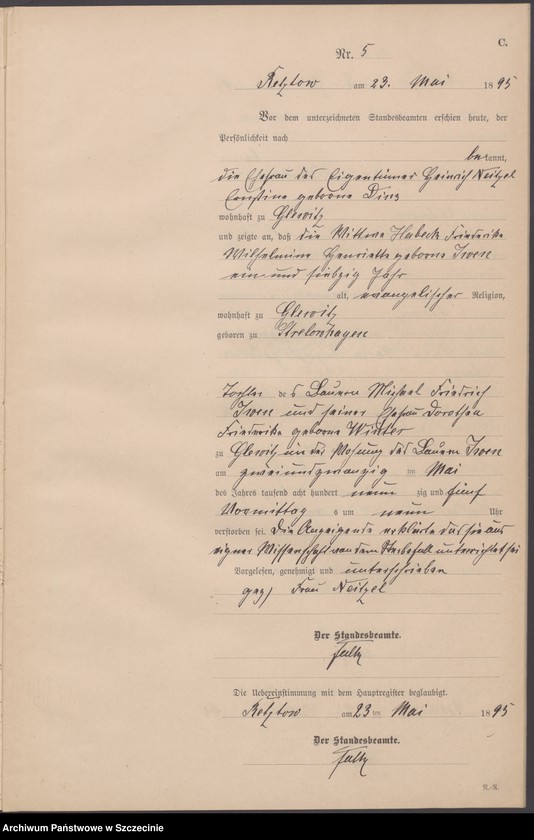 C.
Nr. 5
Retztow am 23. Mai 1895
Vor dem unterzeichneten Standesbeamten erschien heute, der
Persönlichkeit nach
bekannt,
die Ehefrau des Eigentümer Heinrich Neitzel
geborne
wohnhaft zu Glewitz
und zeigte an, daß die Wittwe Habeck Friederike
Wilhelmine Henriette geborne
ein und siebzig Jahr
alt, evangelischer Religion,
wohnhaft zu Glewitz
geboren zu Strelowhagen
Tochter des Bauern Michael Friedrich
und seiner Ehefrau Dorothea
Friederike geborne Winkler
zu Glewitz in der des Bauern
am zweiundzwanzig ten Mai
des Jahres tausend acht hundert neun zig und fünf
Vormittag s um neun Uhr
verstorben sei. Die Anzeigende erklärte daß sie aus
eigner Wissenschaft von dem Sterbefall unterrichtet sei
Vorgelesen, genehmigt und unterschrieben
gez) Frau Neitzel
Der Standesbeamte.
Falk
Die Uebereinstimmung mit dem Hauptregister beglaubigt.
Retztow am 23 ten Mai 1895
Der Standesbeamte.
Falk
Archiwum Państwowe w Szczecinie